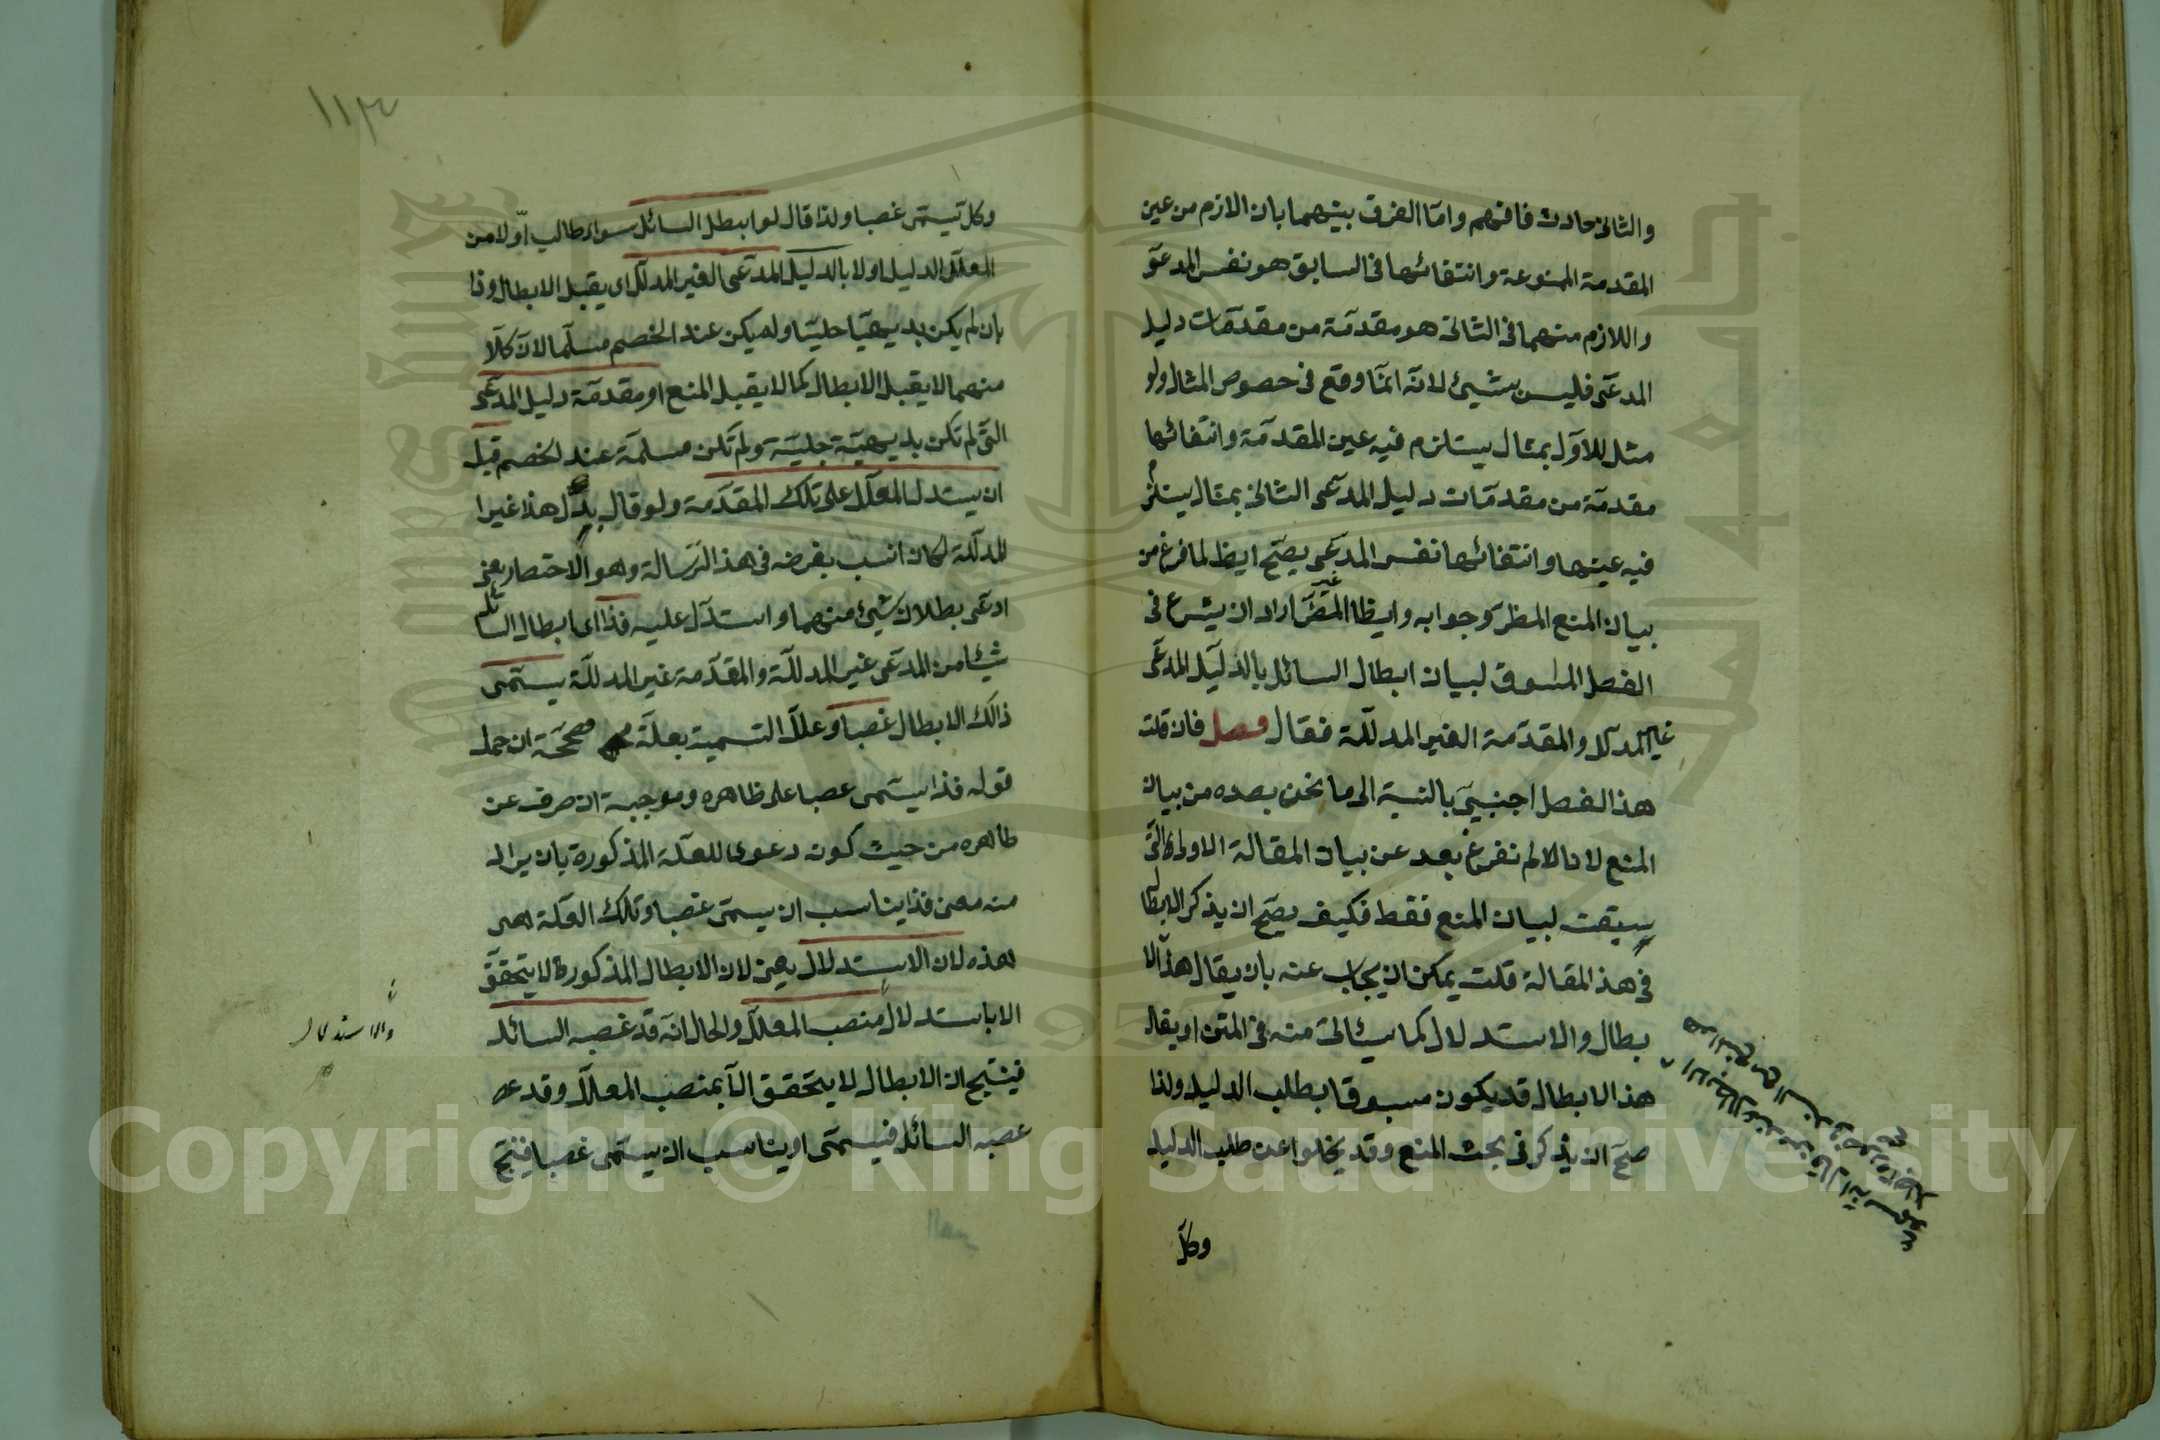 والثانى حادث فافهم واما الفرق بينهما بان الازم من عين
المقدمة الممنوعة وانتفائها فى السابق هو نفس المدعى
واللازم منهما فى الثانى هو مقدمة من مقدمات دليل
المدعى فليس بشيئ لانه انما وقع فى خصوص المثال ولو
مثل للاول بمثال يستلزم فيه عين المقدمة وانتفائها
مقدمة من مقدمات دليل المدعى الثانى بمثال يستلزم
فيه عينها وانتفائها نفس المدعى يصح ايضا لما فرغ من
بيان المنع المضر وجوابه وايضا الغير المضر اراد ان يشرع فى
الفصل المسوق لبيان ابطال السائل بالدليل المدعى
غير المدلل والمقدمة الغير المدللة فقال فصل فان قلت
هذ الفصل اجنبى بالنسبة الى ما نحن بصدده من بيان
المنع لانا لم نفرغ بعد عن بيان المقالة الاولى التى
سيقت لبيان المنع فقط فكيف يصح ان يذكر الابطال
فى هذ المقالة قلت يمكن ان يجاب عنه بان يقال هذا الا
بطال والاستدلال كما سيأتى منه فى المتن او يقال
هذ الابطال قد يكون مسبوقا بطلب الدليل ولذا
صح ان يذكر فى بحث المنع وقد يخلوا عن طلب الدليل
وكل
١١٣
وكل يسمى غصبا ولذا قال لو ابطل السائل سواء طالب اولا من
المعلل الدليل اولا بالدليل المدعى الغير المدلل اى يقبل الابطال وذا
بان لم يكن بديهيا جليا ولم يكن عند الخصم مسلما لان كلا
منهما لا يقبل الابطال كما لا يقبل المنع او مقدمة دليل المدعى
التى لم تكن بديهية جلية ولم تكن مسلمة عند الخصم قبل
ان يستدل المعلل على تلك المقدمة ولو قال بدل هذا غيرا
لمدللة لكان انسب بغرضه فى هذ الرسالة وهو الاختصار يعنى
ادعى بطلان شيئ منهما واستدل عليه فذا اى ابطال السائل
شيئا من المدعى غير المدللة والمقدمة غير المدللة يسمى
ذالك الابطال غصبا وعلل التسمية بعلة صححة ان حمل
قوله فذا يسمى غصبا على ظاهره وموجبة ان صرف عن
ظاهره من حيث كون دعوى للعلة المذكورة بان يراد
منه معنى فذا يناسب ان يسمى غصبا وتلك العلة هى
هذه لان الاستدلال يعنى لان الابطال المذكور لا يتحقق
الا باستدلال منصب المعلل والحال انه قد غصبه السائل
والاستدلال
فينتج ان الابطال لا يتحقق الا بمنصب المعلل وقد
غصبه السائل فيسمى او يناسب ان يسمى غصبا فينتج
Copyright © King Saud University